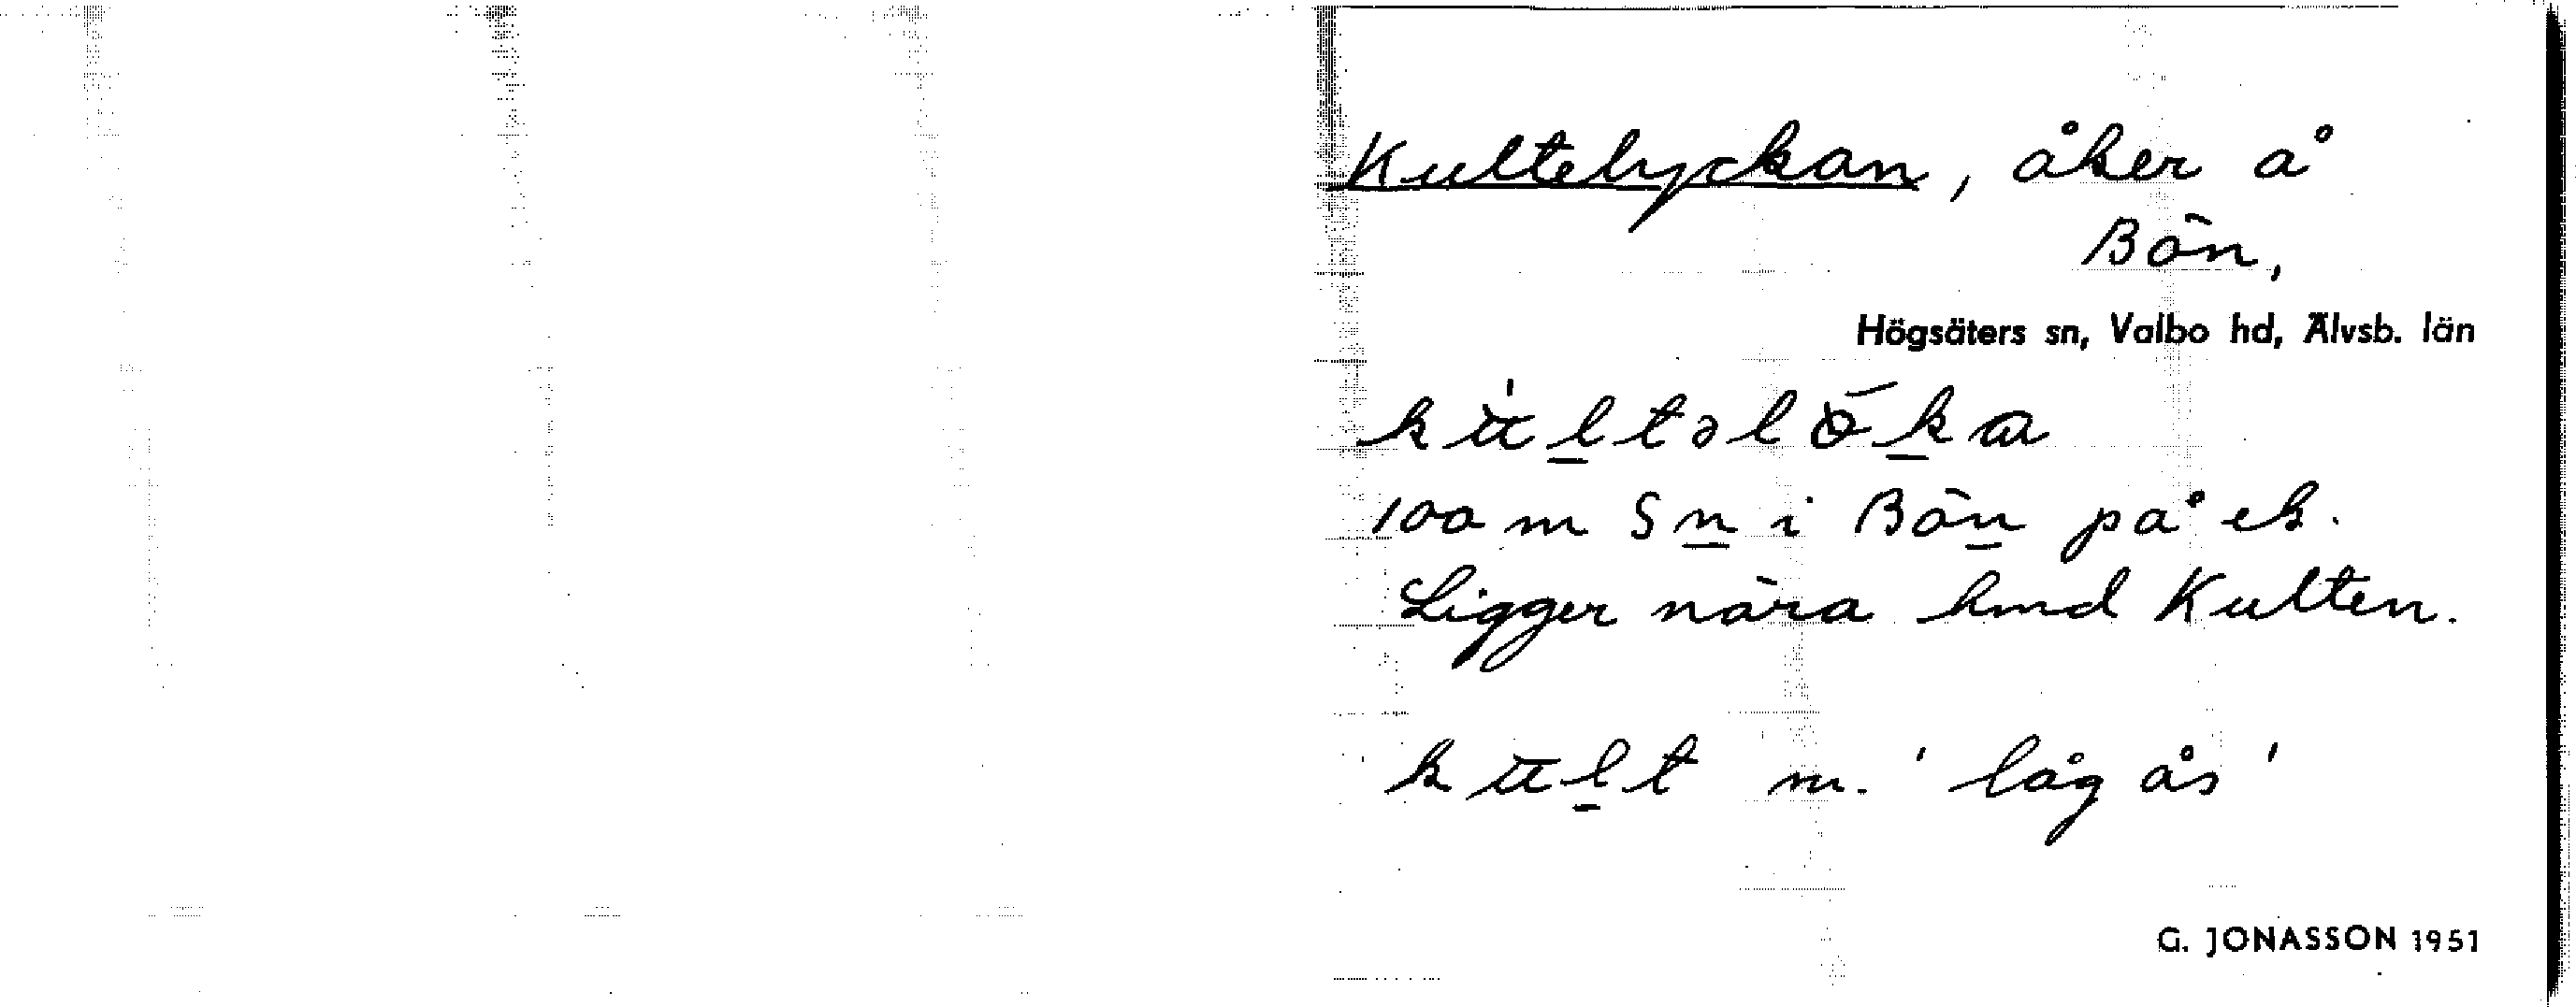 Kultelyckan, åker å
Bön,
Högsäters sn, Valbo hd, Älvsb. län
ku̇l̲təlǿk̲a
100 m Sn̲ i Bön̲ på ek.
Ligger nära hmd Kulten.
kul̲t m. 'låg ås'
G. JONASSON 1951